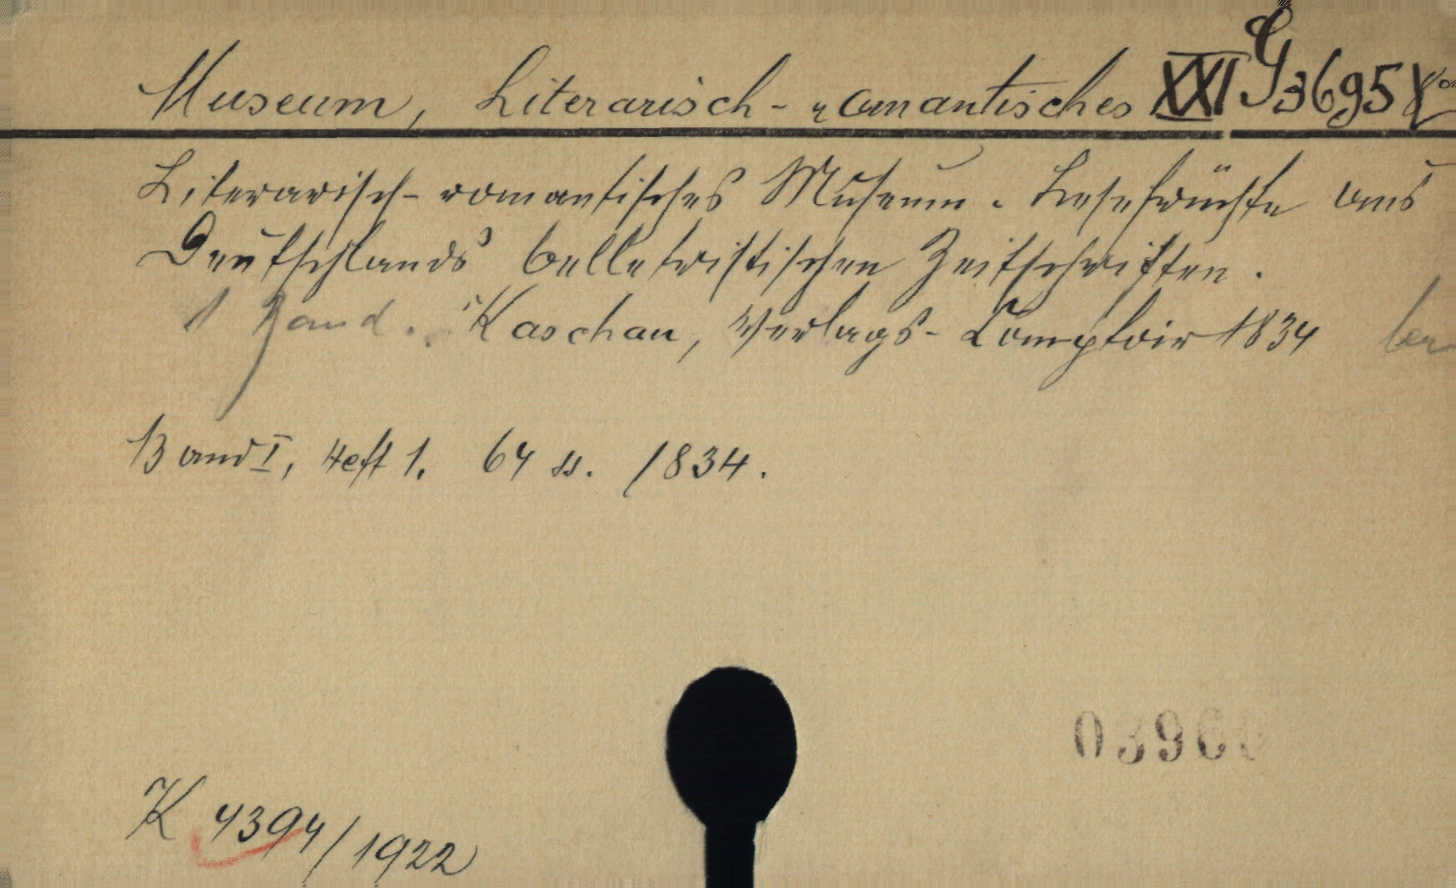 Museum, Literarisch-romantisches XXI G 3695
Literarisch-romantisches Museum. Lesefrüchte aus
Deutschlands belletristischen Zeitschriften.
1 Band. Kaschau, Verlags-Comptoir 1834
Band I, Heft 1. 64 S. 1834.
0396
K 4394/1922